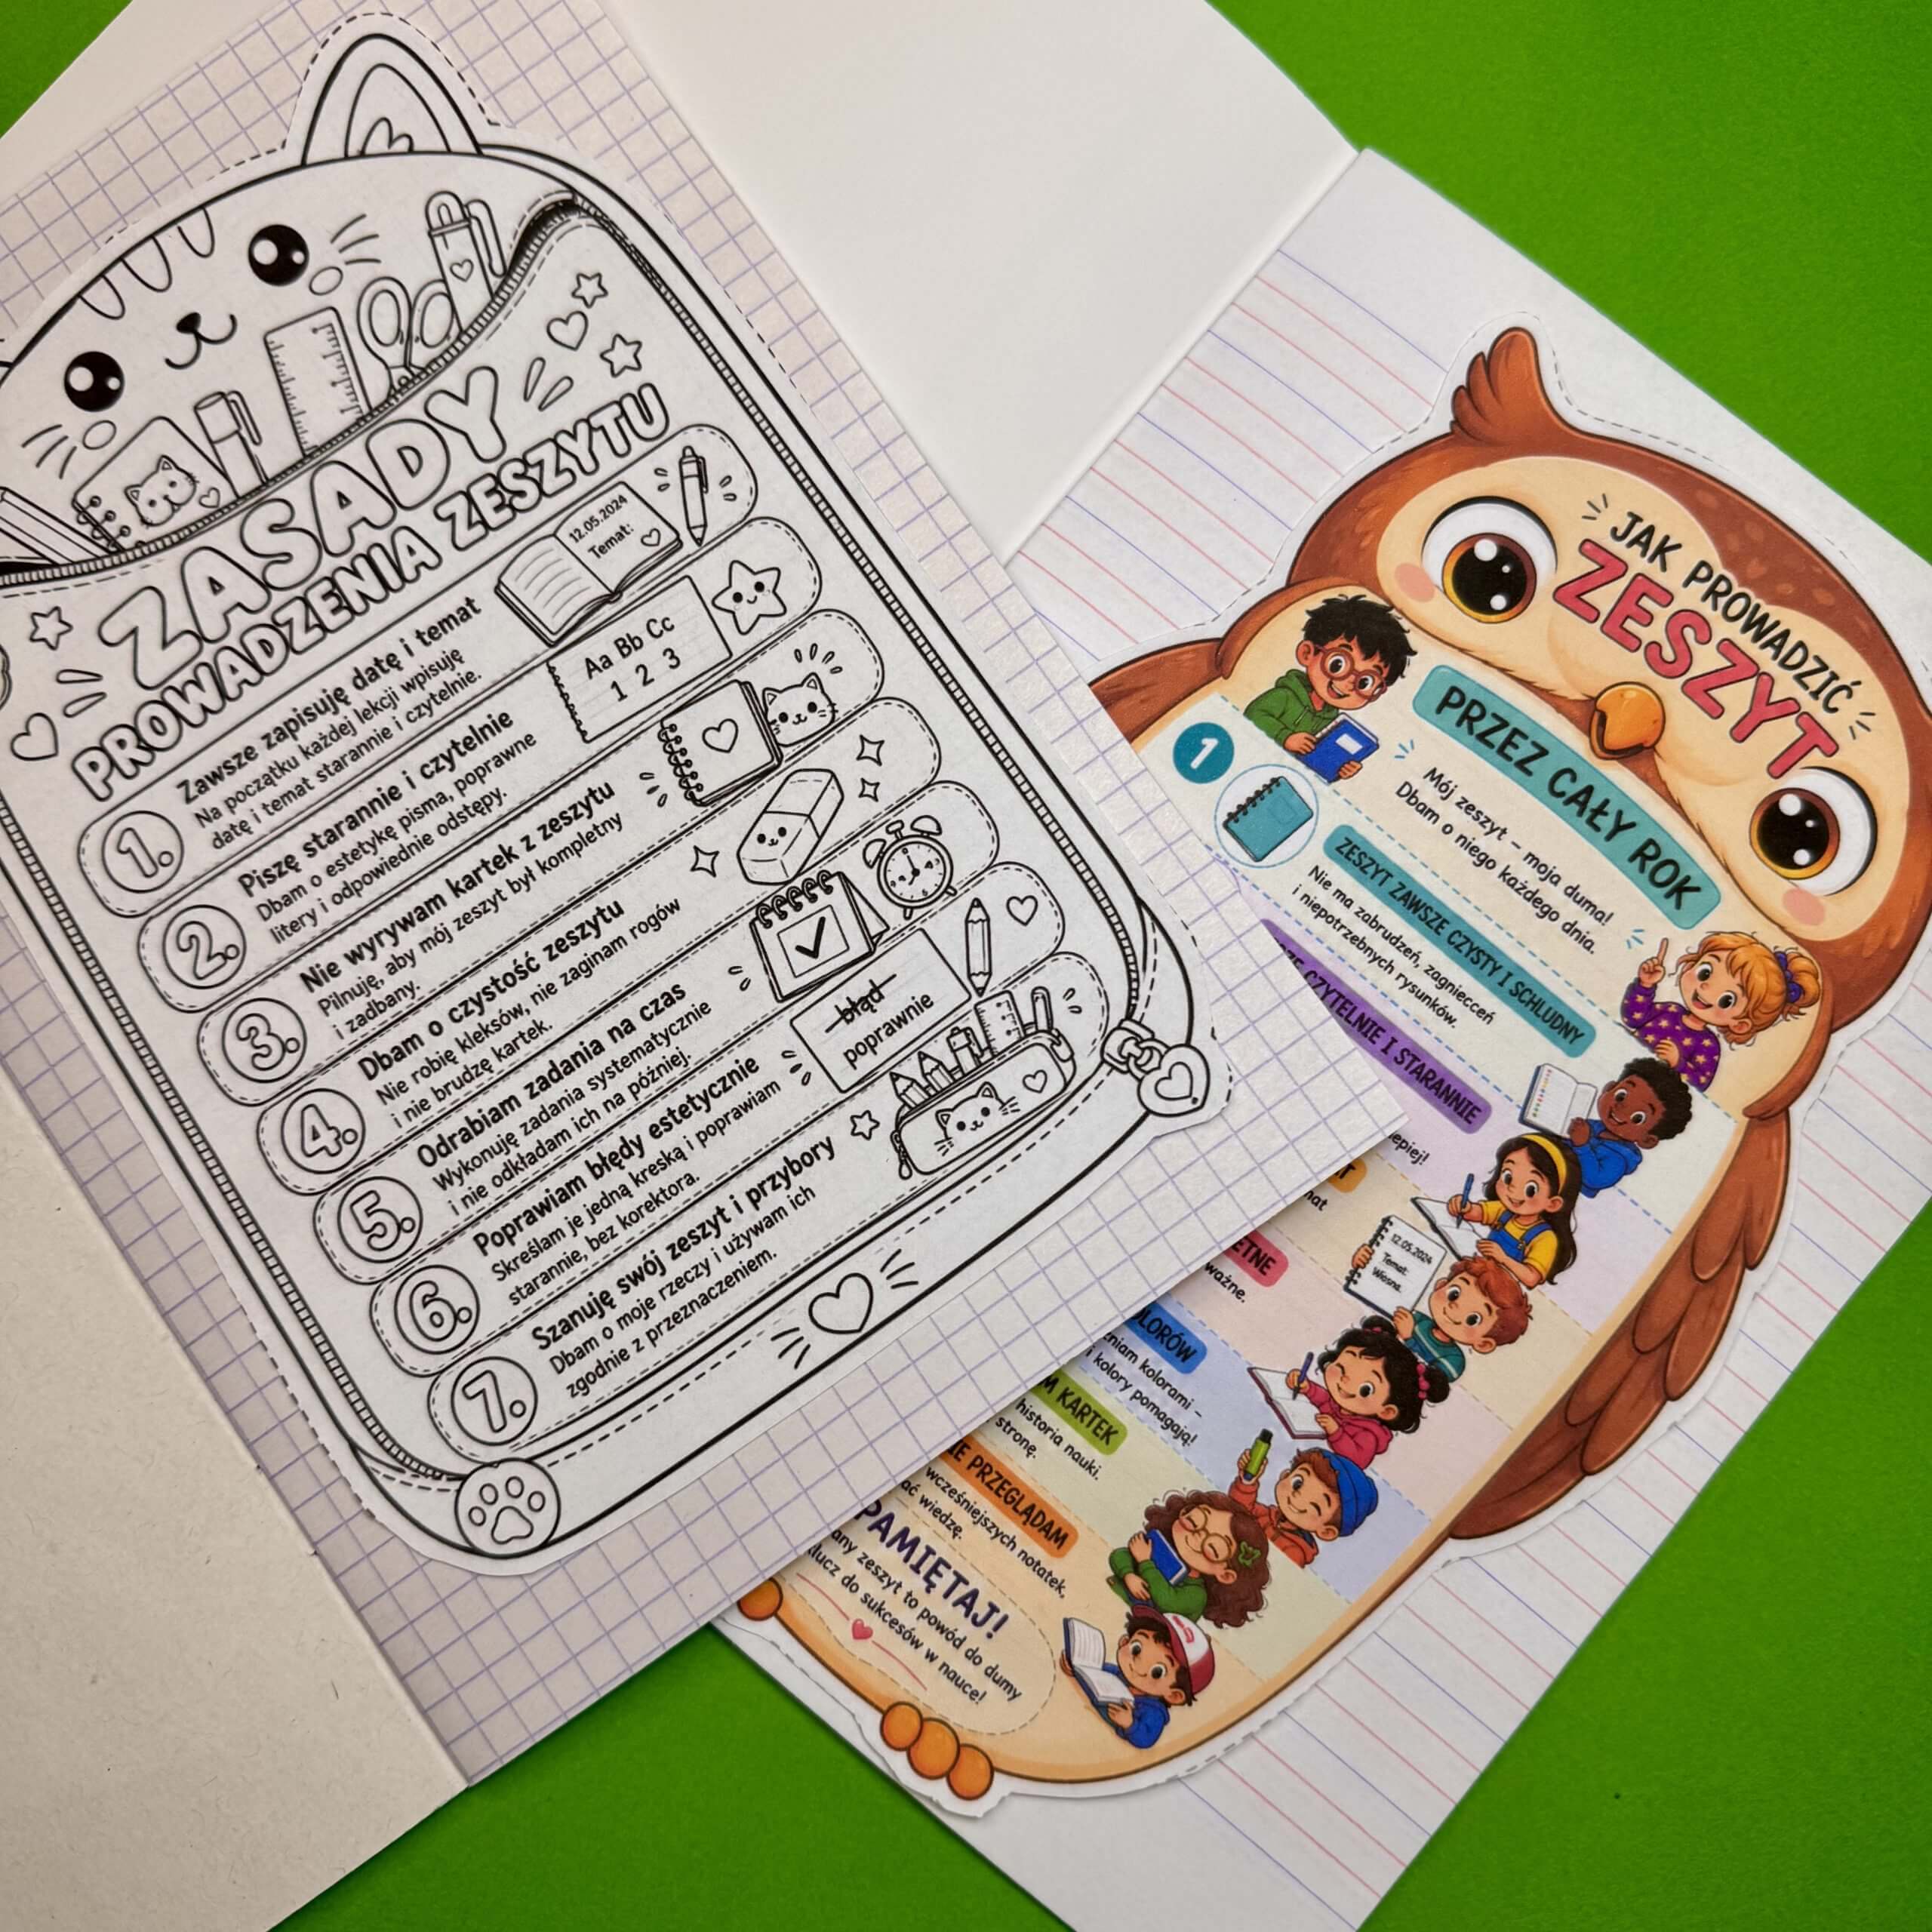 ZASADY
PROWADZENIA ZESZYTU
1.
Zawsze zapisuję datę i temat
Na początku każdej lekcji wpisuję
datę i temat starannie i czytelnie.
12.05.2024
Temat:
2.
Piszę starannie i czytelnie
Dbam o estetykę pisma, poprawne
litery i odpowiednie odstępy.
Aa Bb Cc
1 2 3
3.
Nie wyrywam kartek z zeszytu
Pilnuję, aby mój zeszyt był kompletny
i zadbany.
4.
Dbam o czystość zeszytu
Nie robię kleksów, nie zaginam rogów
i nie brudzę kartek.
5.
Odrabiam zadania na czas
Wykonuję zadania systematycznie
i nie odkładam ich na później.
6.
Poprawiam błędy estetycznie
Skreślam je jedną kreską i poprawiam
starannie, bez korektora.
błąd
poprawnie
7.
Szanuję swój zeszyt i przybory
Dbam o moje rzeczy i używam ich
zgodnie z przeznaczeniem.
JAK PROWADZIĆ
ZESZYT
PRZEZ CAŁY ROK
Mój zeszyt – moja duma!
Dbam o niego każdego dnia.
1
ZESZYT ZAWSZE CZYSTY I SCHLUDNY
Nie ma zabrudzeń, zagnieceń
i niepotrzebnych rysunków.
CZYTELNIE I STARANNIE
12.05.2024
Temat:
Wiosna.
ważne.
kolorami –
i kolory pomagają!
KARTEK
historia nauki.
stronę.
PRZEGLĄDAM
wcześniejszych notatek,
wiedzę.
PAMIĘTAJ!
zeszyt to powód do dumy
klucz do sukcesów w nauce!